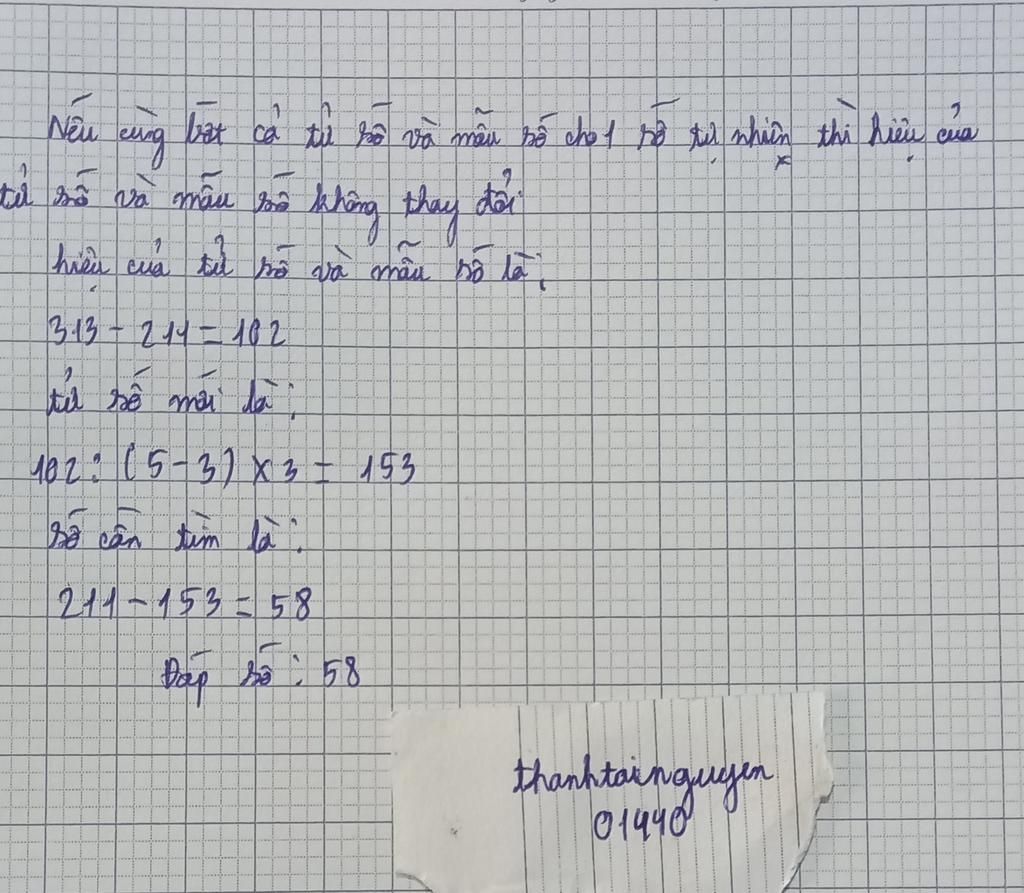 Nếu cùng bớt cả tử số và mẫu số cho 1 số tự nhiên thì hiệu của
tử số và mẫu số không thay đổi
hiệu của tử số và mẫu số là:
313 - 211 = 102
tử số mới là:
102 : (5 - 3) x 3 = 153
số cần tìm là:
211 - 153 = 58
Đáp số : 58
thanhtainguyen
01440